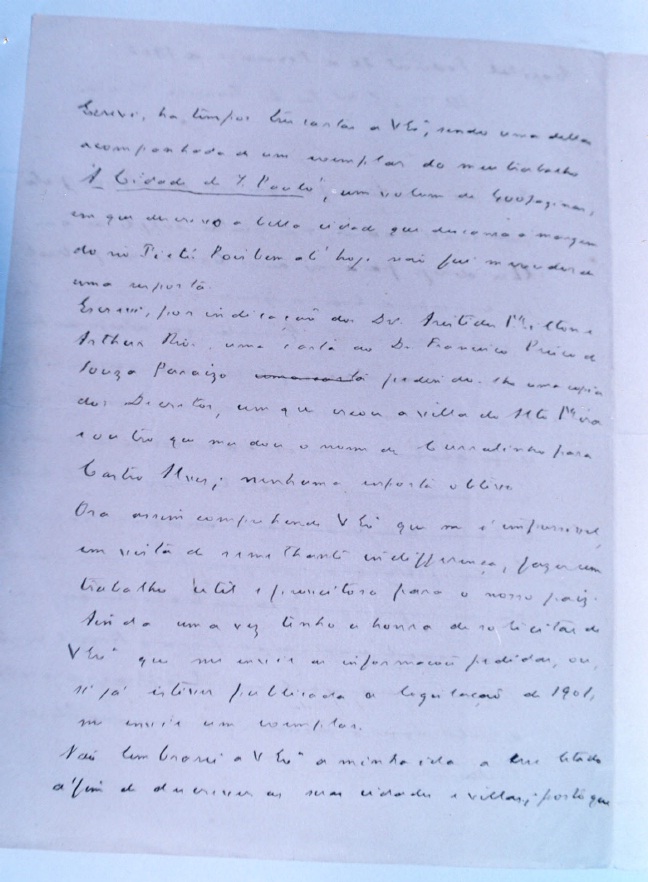 Escrevi, ha tempos tres cartas a V Exª, sendo uma dellas
acompanhada de um exemplar do meu trabalho
"A Cidade de S. Paulo", um volume de 400 paginas,
em que descrevo a bella cidade que descança á margem
do rio Tieté. Pois bem até hoje não fui merecedor de
uma resposta.
Escrevi, por indicação dos Drs. Aristides Milton e
Arthur Rios, uma carta ao Dr. Francisco Prisco de
Souza Paraizo uma carta pedindo-lhe uma copia
dos Decretos, um que creou a villa do
e outro que mudou o nome de Curralinho para
Castro Alves; nenhuma resposta obtive.
Ora assim comprehende V Exª que me é impossivel,
em vista de semelhante indifferença, fazer um
trabalho util e proveitoso para o nosso paiz.
Ainda uma vez tenho a honra de solicitar de
V Exª que me envie as informações pedidas, ou,
si já estiver publicada a legislação de 1901,
me envie um exemplar.
Não lembrarei a V Exª a minha ida a esse Estado
afim de descrever as suas cidades e villas; posto que